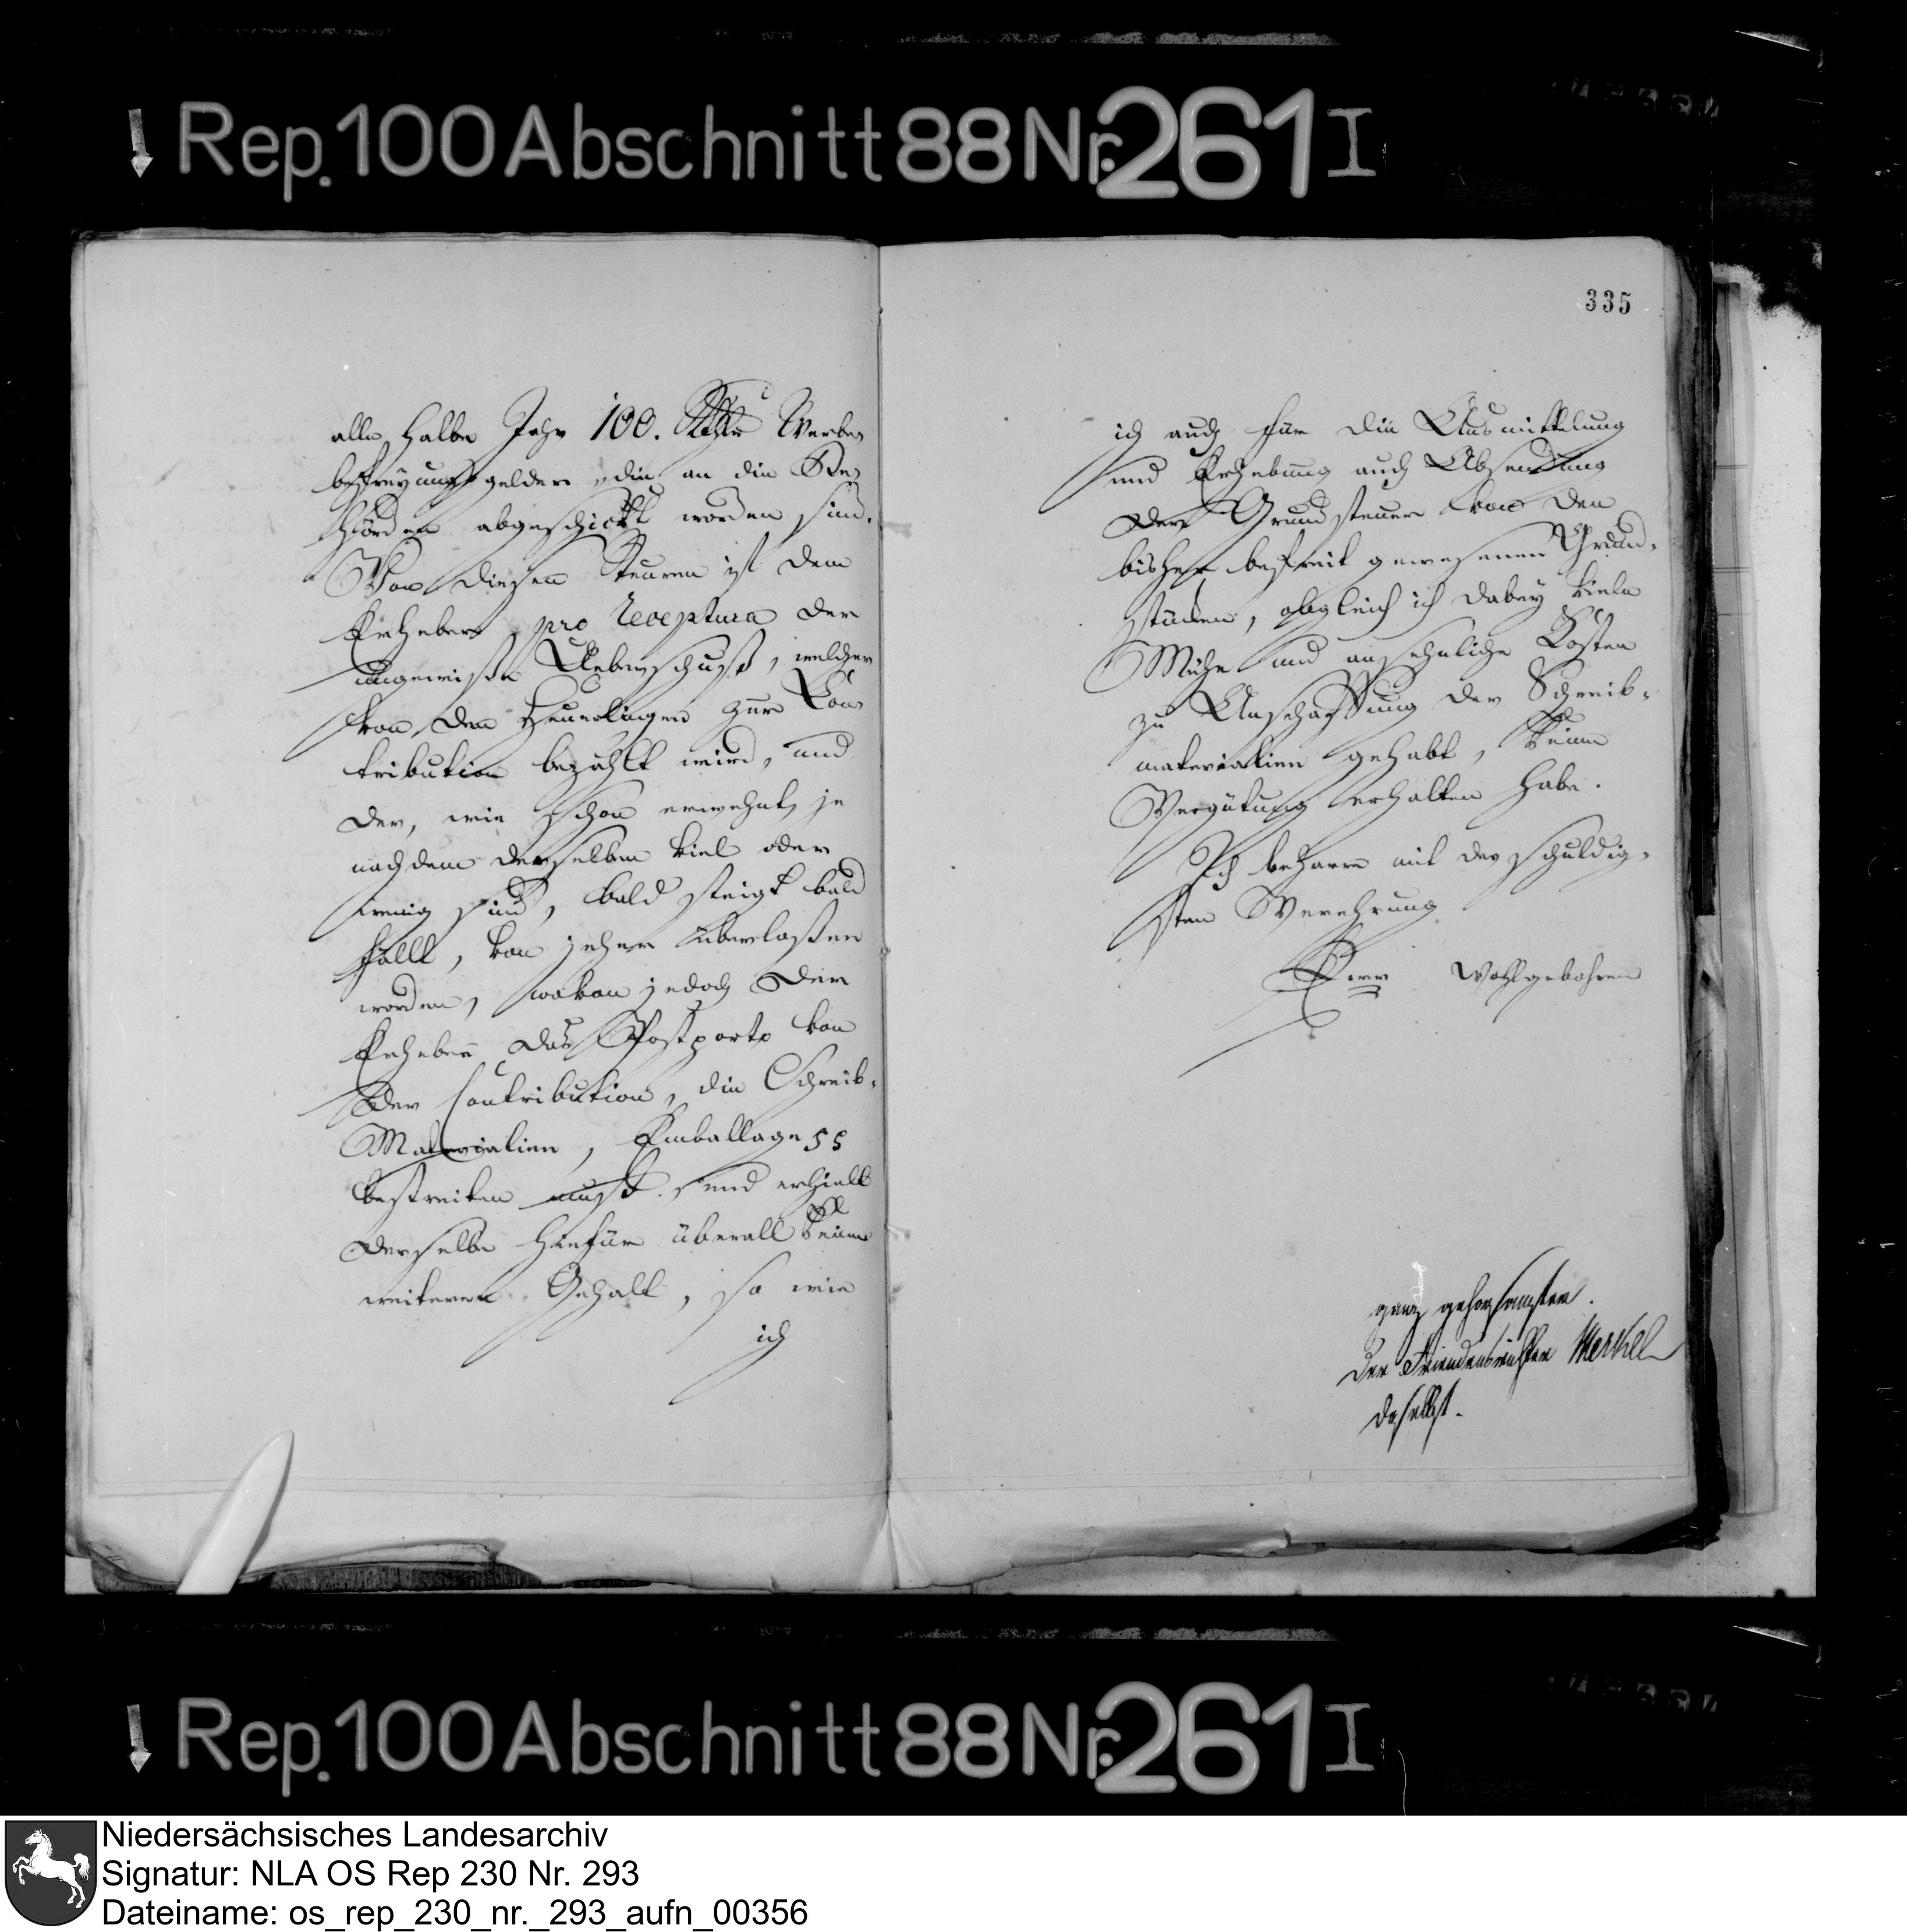 Rep. 100 Abschnitt 88 Nr. 261 I
335
alle halbe Jahr 100. Rthlr Werbe,
befreyungsgelder, die an die Be,
hörden abgeschickt worden sind.
Von diesen Steuren ist dem
Erheber, pro receptura der
ungewiße Ueberschuß, welcher
von den Heuerlingen zur Con,
tribution bezahlt wird, und
der, wie schon erwehnt, je
nachdem derselben viel oder
wenig sind, bald steigt bald
fällt, von jeher überlaßen
worden, wovon jedoch der
Erheber das Postporto von
der Contribution, die Schreib-
Materialien, Emballage
bestreiten mußte, und erhielt
derselbe hiefür überall keine
weiteren Gehalt, so wie
ich
ich auch für die Ausmittelung
und Erhebung auch Absendung
der Grundsteuer von den
bisher befreit gewesenen Grund-
stücken, obgleich ich dabey viele
Mühe und ansehnliche Kosten
zu Anschaffung der Schreib-
materialien gehabt, keine
Vergütung erhalten habe.
Ich beharre mit der schuldig-
sten Verehrung
Euer Wohlgebohren
ganz gehorsamster.
Der Friedensrichter Merkel
daselbst.
Rep. 100 Abschnitt 88 Nr. 261 I
Niedersächsisches Landesarchiv
Signatur: NLA OS Rep 230 Nr. 293
Dateiname: os_rep_230_nr._293_aufn_00356